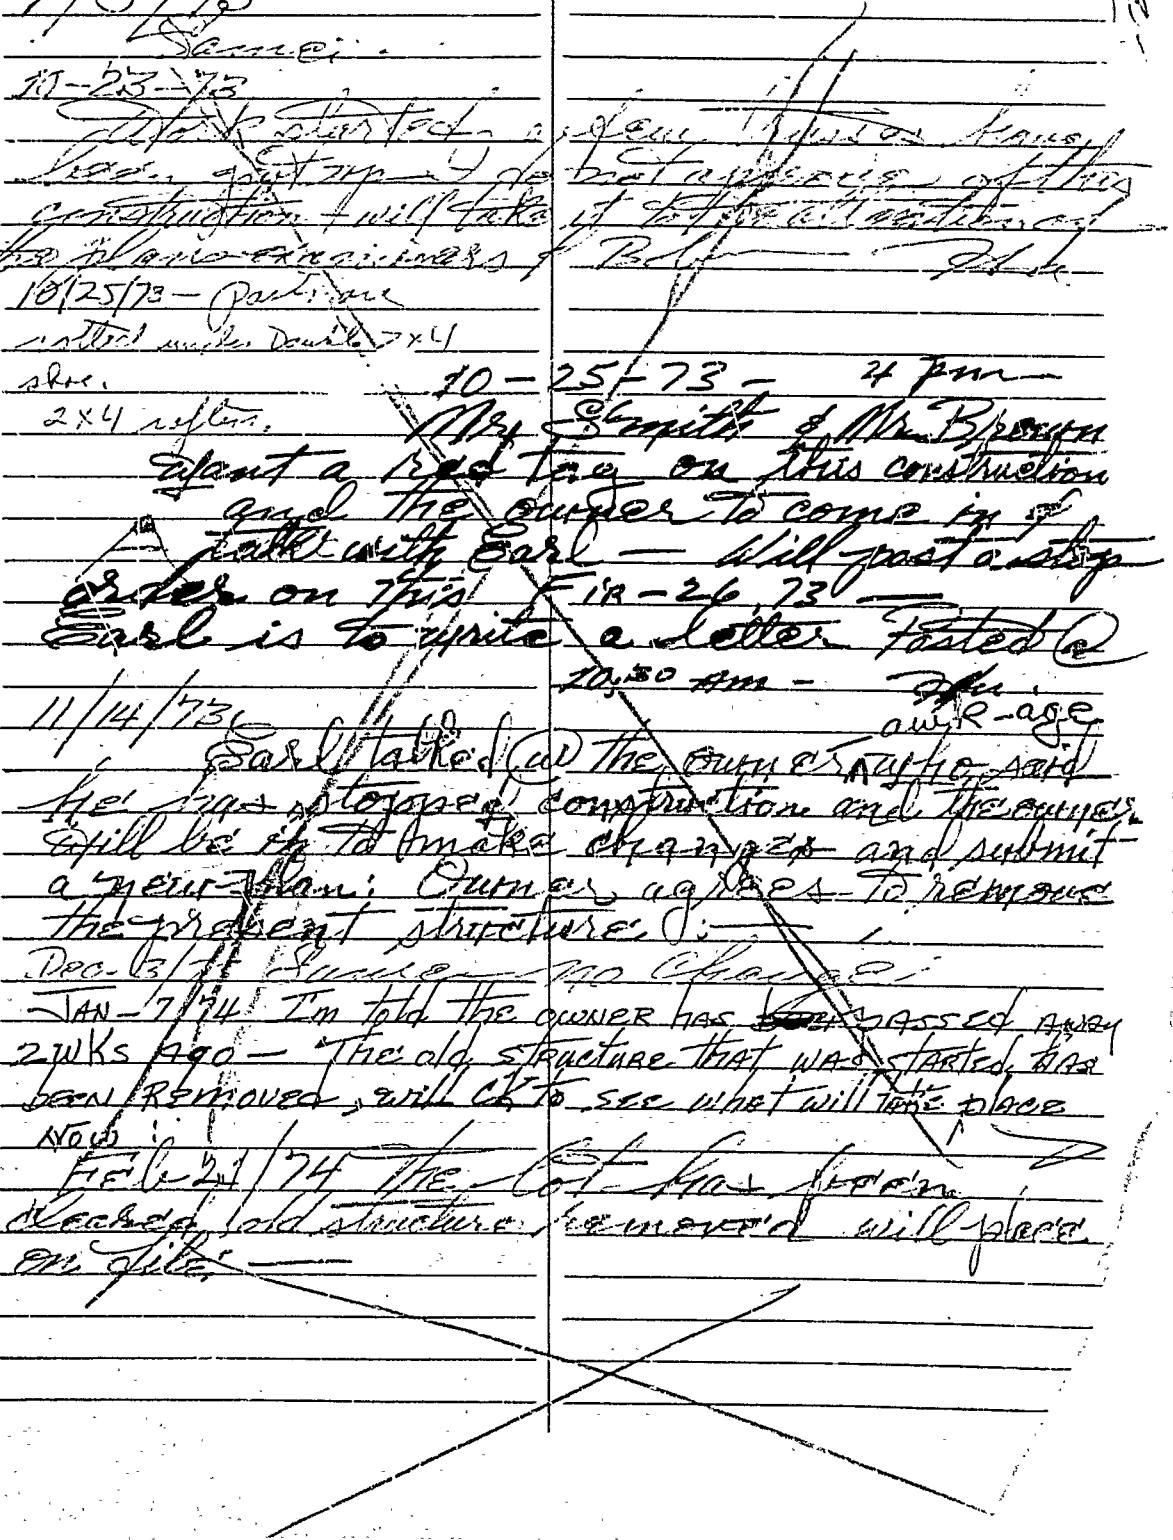 Same.
10-23-73
Work started. a few trusses have
been put up - I do not approve of this
construction + will take it to the attention of
the plans examiners &
10/25/73 -
rotted under Double 2x4
shoe.
2x4 rafters.
10-25-73 - 4 pm -
Mr. Smith & Mr. Brown
want a red tag on this construction
and the owner to come in &
talk with Earl — Will post a stop
order on this Fir - 26, 73 —
Earl is to write a letter Posted @
10:30 Am -
11/14/73
Earl talked @ the owner who said
he has stopped construction and the owner
will be in to make changes and submit
a new plan. Owner agrees to remove
the present structure. —
Dec. 3/73 Same no change.
JAN - 7/74 I'm told the OWNER has PASSED AWAY
2 WKS AGO — The old structure that was STARTED HAS
been Removed, will CK to see what will TAKE PLACE
NOW.
Feb 21/74 The Lot has been
cleared, old structure removed will place
on file. —